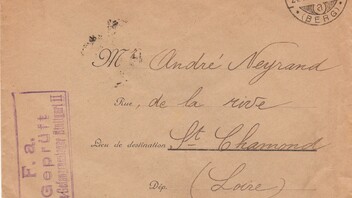 (BERG)
M André Neyrand
Rue, de la rive
Lieu de destination St Chamond
Dép. (Loire)
F. a.
Geprüft